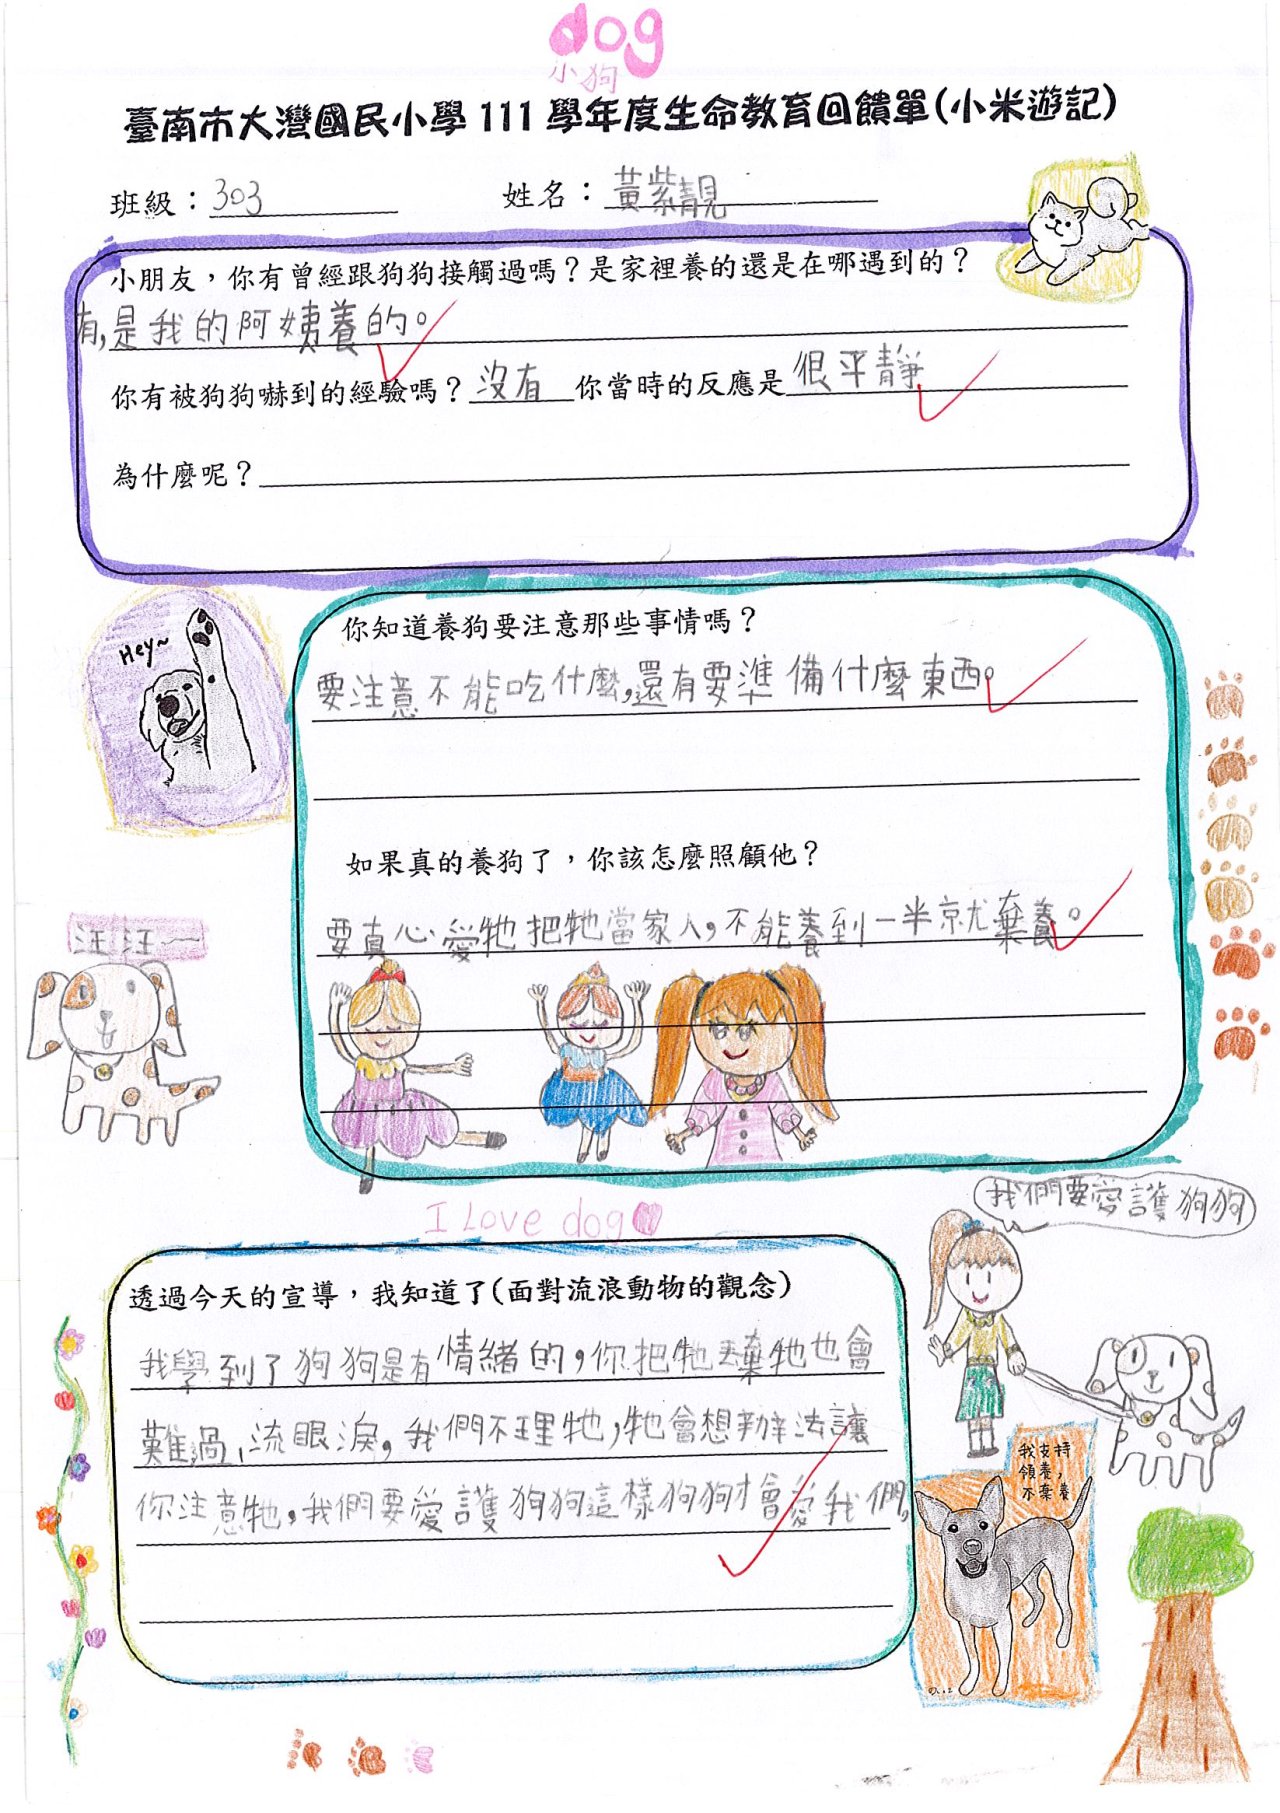 dog
小狗
臺南市大灣國民小學 111 學年度生命教育回饋單(小米遊記)
班級：303 姓名：黃紫靚
小朋友，你有曾經跟狗狗接觸過嗎？是家裡養的還是在哪遇到的？
有,是我的阿姨養的。
你有被狗狗嚇到的經驗嗎？沒有 你當時的反應是很平靜
為什麼呢？
Hey~
你知道養狗要注意那些事情嗎？
要注意不能吃什麼,還有要準備什麼東西。
如果真的養狗了，你該怎麼照顧他？
要真心愛牠把牠當家人,不能養到一半就棄養。
汪汪一
I Love dog
我們要愛護狗狗
透過今天的宣導，我知道了(面對流浪動物的觀念)
我學到了狗狗是有情緒的,你把牠丟棄牠也會
難過,流眼淚,我們不理牠,牠會想辦法讓
你注意牠,我們要愛護狗狗這樣狗狗才會愛我們,
我支持
領養，
不棄養